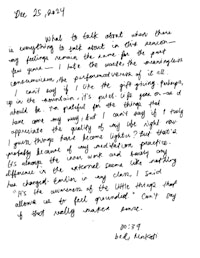 Dec 25, 2024
What to talk about when there
is everything to talk about in this season—
my feelings remain the same for the past
few years — I hate the waste, the meaningless
consumerism, the performativeness of it all.
I can't say if I like the gift giving, perhaps,
up in the mountain, it's quiet. Life goes on as it
should be. I'm grateful for the things that
have come my way; but I can't say if I truly
appreciate the quality of my life right now
I guess things have become lighter? But that's
probably because of my meditation practice.
It's always the inner work and barely any
difference in the external seems like nothing
has changed. Earlier in my class, I said
"it's the awareness of the little things that
allows us to feel grounded." Can't say
if that really makes sense.
00:39
bed,